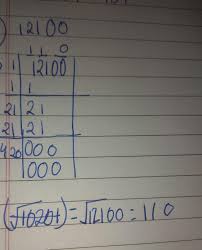 ) 12100
1 1 0
1 12100
1 1
21 21
21 21
420 000
000
(√10201) = √12100 = 110